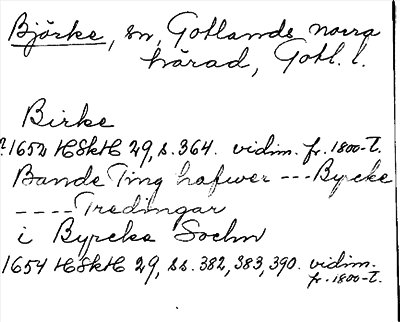 Björke, sn, Gotlands norra
härad, Gotl. l.
Birke
?1654 HSkH 29, s. 364. vidim. fr. 1800-t.
Bande Ting hafwer --- Byrcke
---- Tredingar
i Byrcke Sochn
1654 HSkH 29, ss. 382, 383, 390. vidim.
fr. 1800-t.